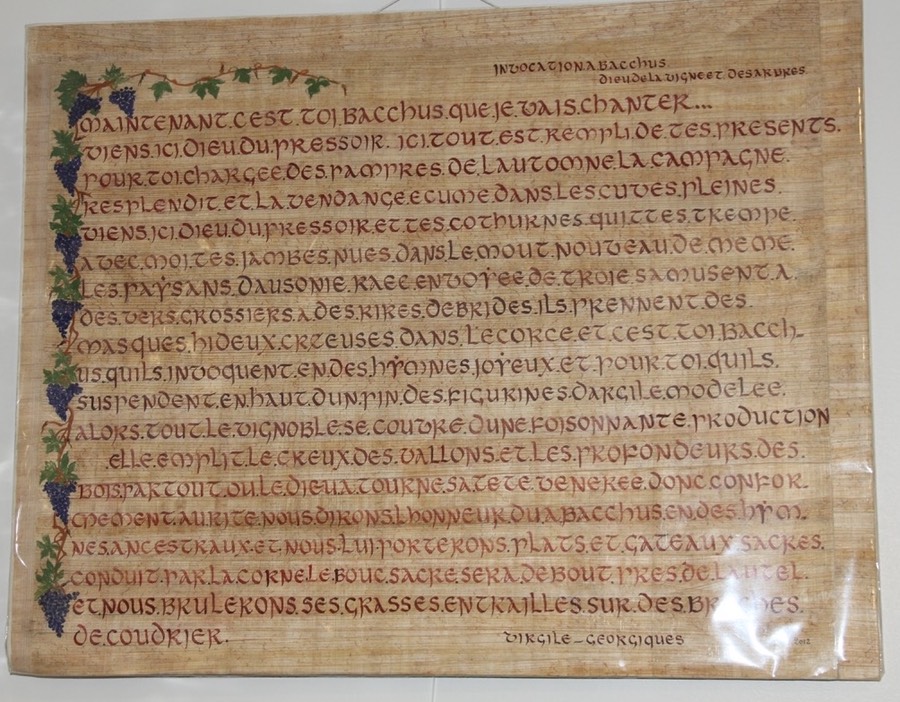 INVOCATION.A.BACCHUS
DIEU.DE.LA.VIGNE.ET.DES.ARBRES
MAINTENANT.C'EST.TOI.BACCHUS.QUE.JE.VAIS.CHANTER...
VIENS.ICI.DIEU.DU.PRESSOIR. ICI.TOUT.EST.REMPLI.DE.TES.PRESENTS.
POUR.TOI.CHARGEE.DES.PAMPRES.DE.L'AUTOMNE.LA.CAMPAGNE.
RESPLENDIT.ET.LA.VENDANGE.ECUME.DANS.LES.CUVES.PLEINES.
VIENS.ICI.DIEU.DU.PRESSOIR.ET.TES.COTHURNES.QUITTES.TREMPE.
AVEC.MOI.TES.JAMBES.NUES.DANS.LE.MOUT.NOUVEAU.DE.MEME.
LES.PAYSANS.D'AUSONIE.RACE.ENVOYEE.DE.TROIE.S'AMUSENT.A.
DES.VERS.GROSSIERS.A.DES.RIRES.DEBRIDES.ILS.PRENNENT.DES.
MASQUES.HIDEUX.CREUSES.DANS.L'ECORCE.ET.C'EST.TOI.BACCH-
US.QU'ILS.INVOQUENT.EN.DES.HYMNES.JOYEUX.ET.POUR.TOI.QU'ILS.
SUSPENDENT.EN.HAUT.D'UN.PIN.DES.FIGURINES.D'ARGILE.MODELEE.
ALORS.TOUT.LE.VIGNOBLE.SE.COUVRE.D'UNE.FOISONNANTE.PRODUCTION
.ELLE.EMPLIT.LE.CREUX.DES.VALLONS.ET.LES.PROFONDEURS.DES.
BOIS.PARTOUT.OU.LE.DIEU.A.TOURNE.SA.TETE.VENEREE.DONC.CONFOR-
MEMENT.AU.RITE.NOUS.DIRONS.L'HONNEUR.DU.A.BACCHUS.EN.DES.HYM-
NES.ANCESTRAUX.ET.NOUS.LUI.PORTERONS.PLATS.ET.GATEAUX.SACRES.
CONDUIT.PAR.LA.CORNE.LE.BOUC.SACRE.SERA.DEBOUT.PRES.DE.L'AUTEL.
ET.NOUS.BRULERONS.SES.GRASSES.ENTRAILLES.SUR.DES.BROCHES.
DE.COUDRIER.
VIRGILE-GEORGIQUES
2012